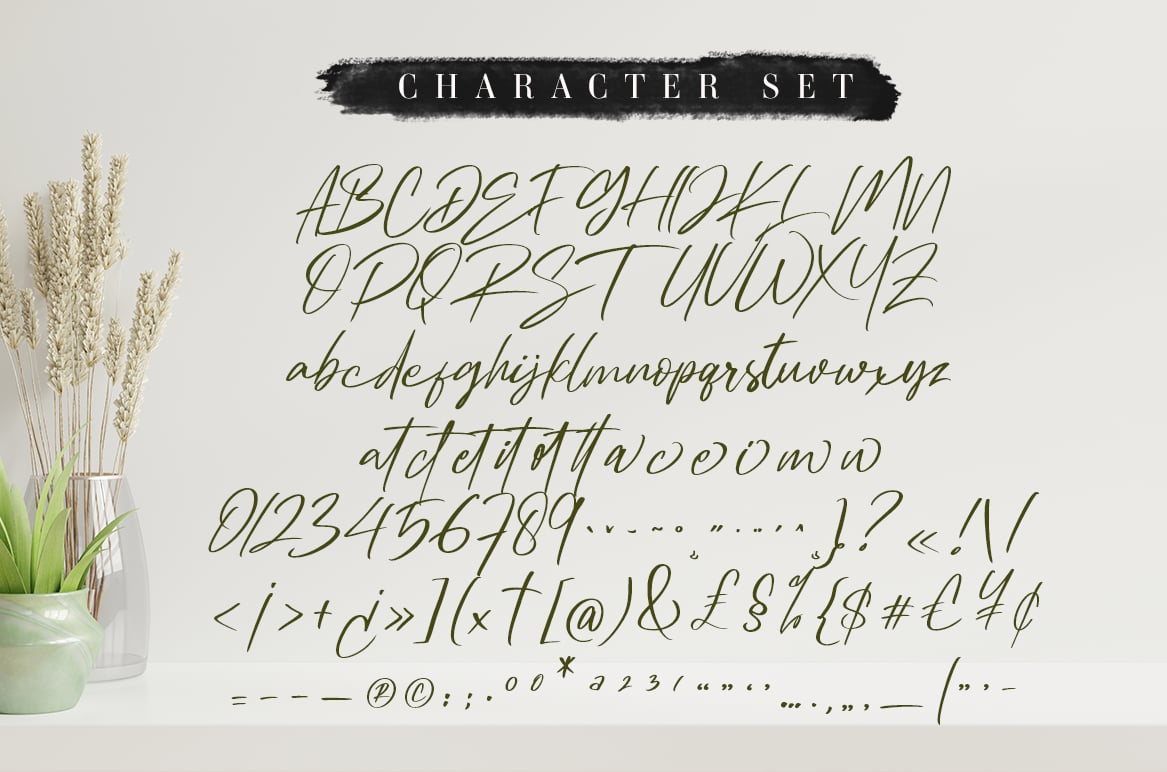 CHARACTER SET
ABCDEFGHIJKL MN
OPQRST UVWXYZ
abcdefghijklmnopqrstuvwxyz
at ct et it ot tt a c e i m n
0123456789 ` ˇ ˘ ~ ° ˝ ˙ ¨ ´ ^ } ? « ! \ /
< ¡ > + ¿ » ] ( × † [ @ ) & £ § % { $ # € ¥ ¢
= - – — ® © : ; · º 0 * ª 2 3 1 “ ” ‘ ’ … . , „ ‚ _ | " ' -